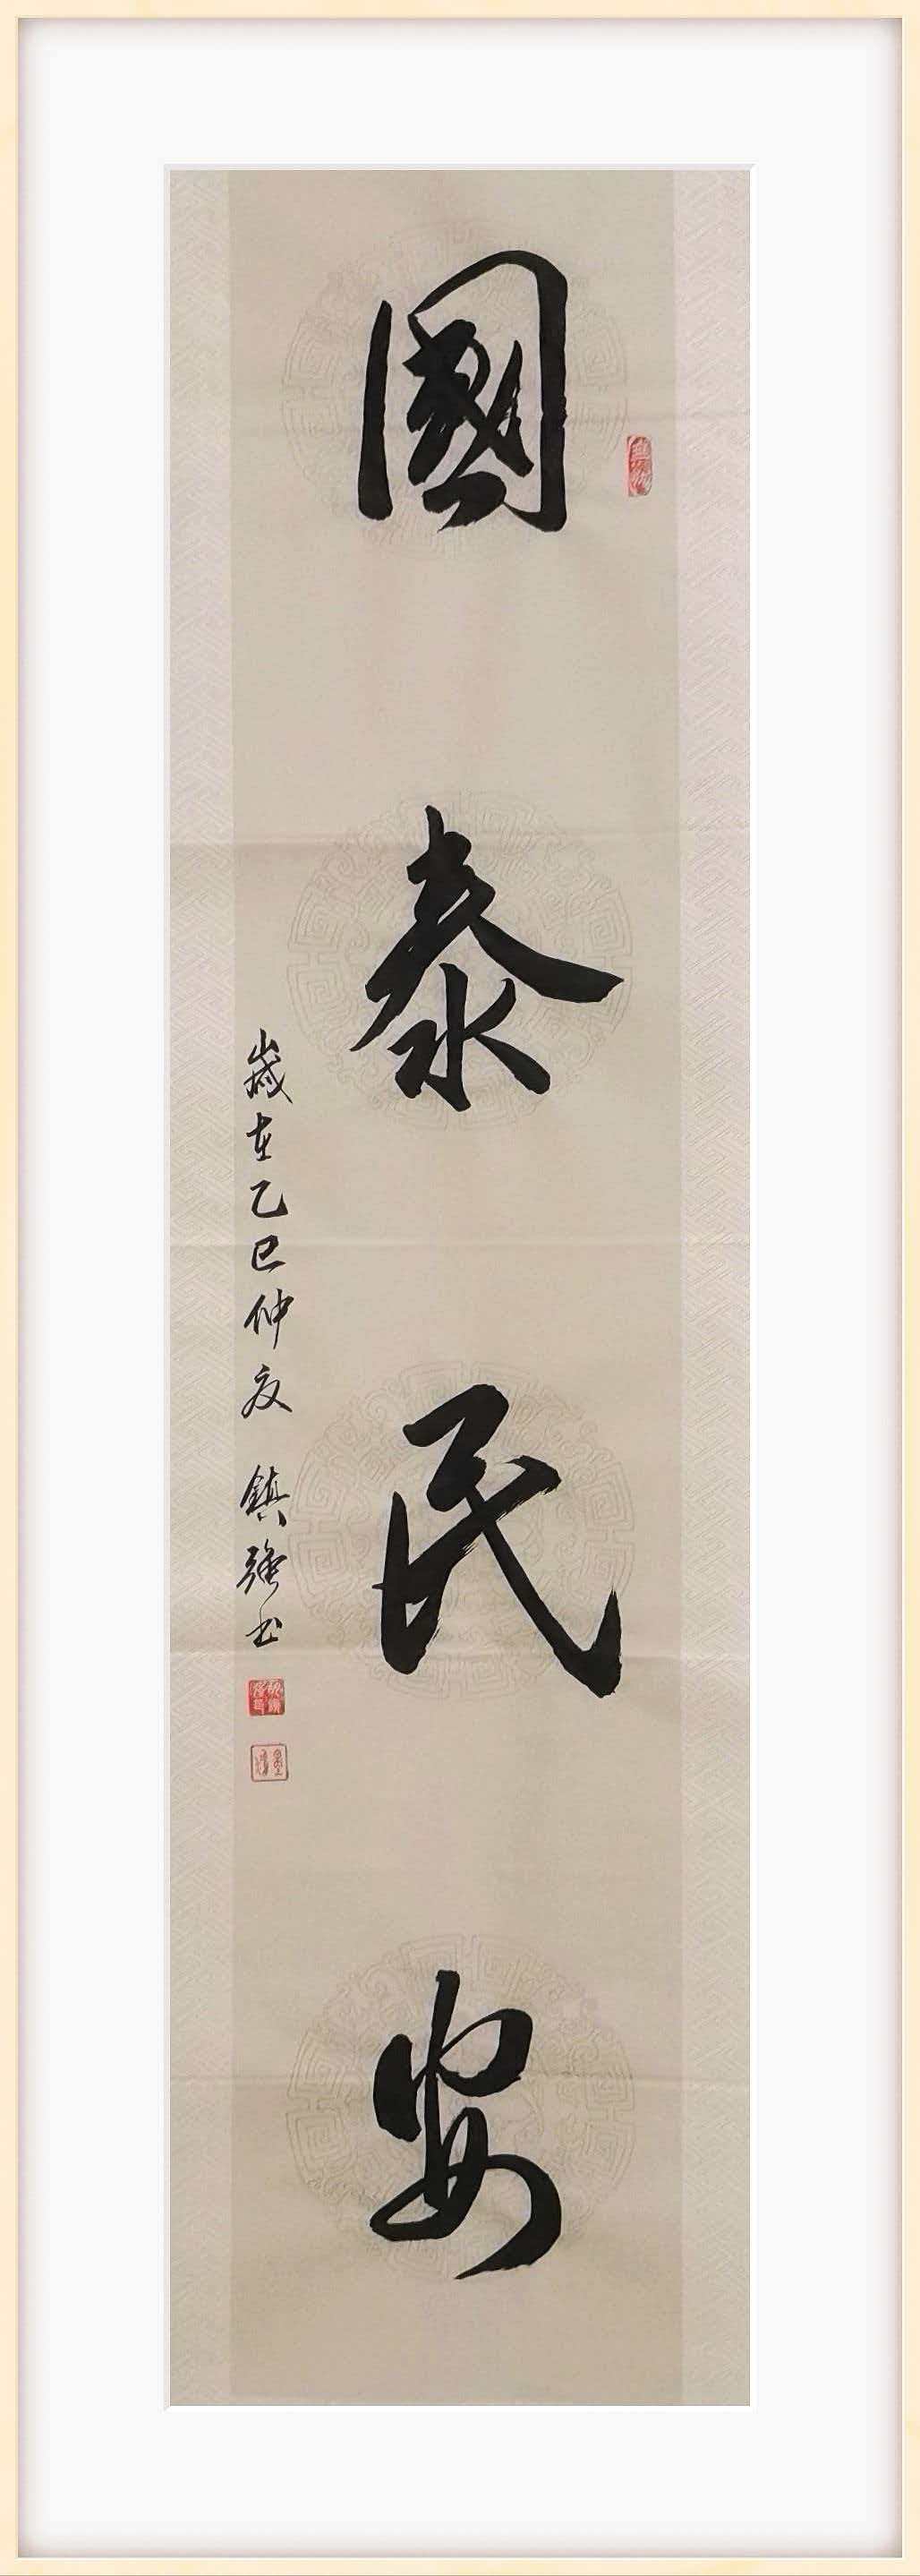 國泰民安
歲在乙巳仲夏 鎮強书